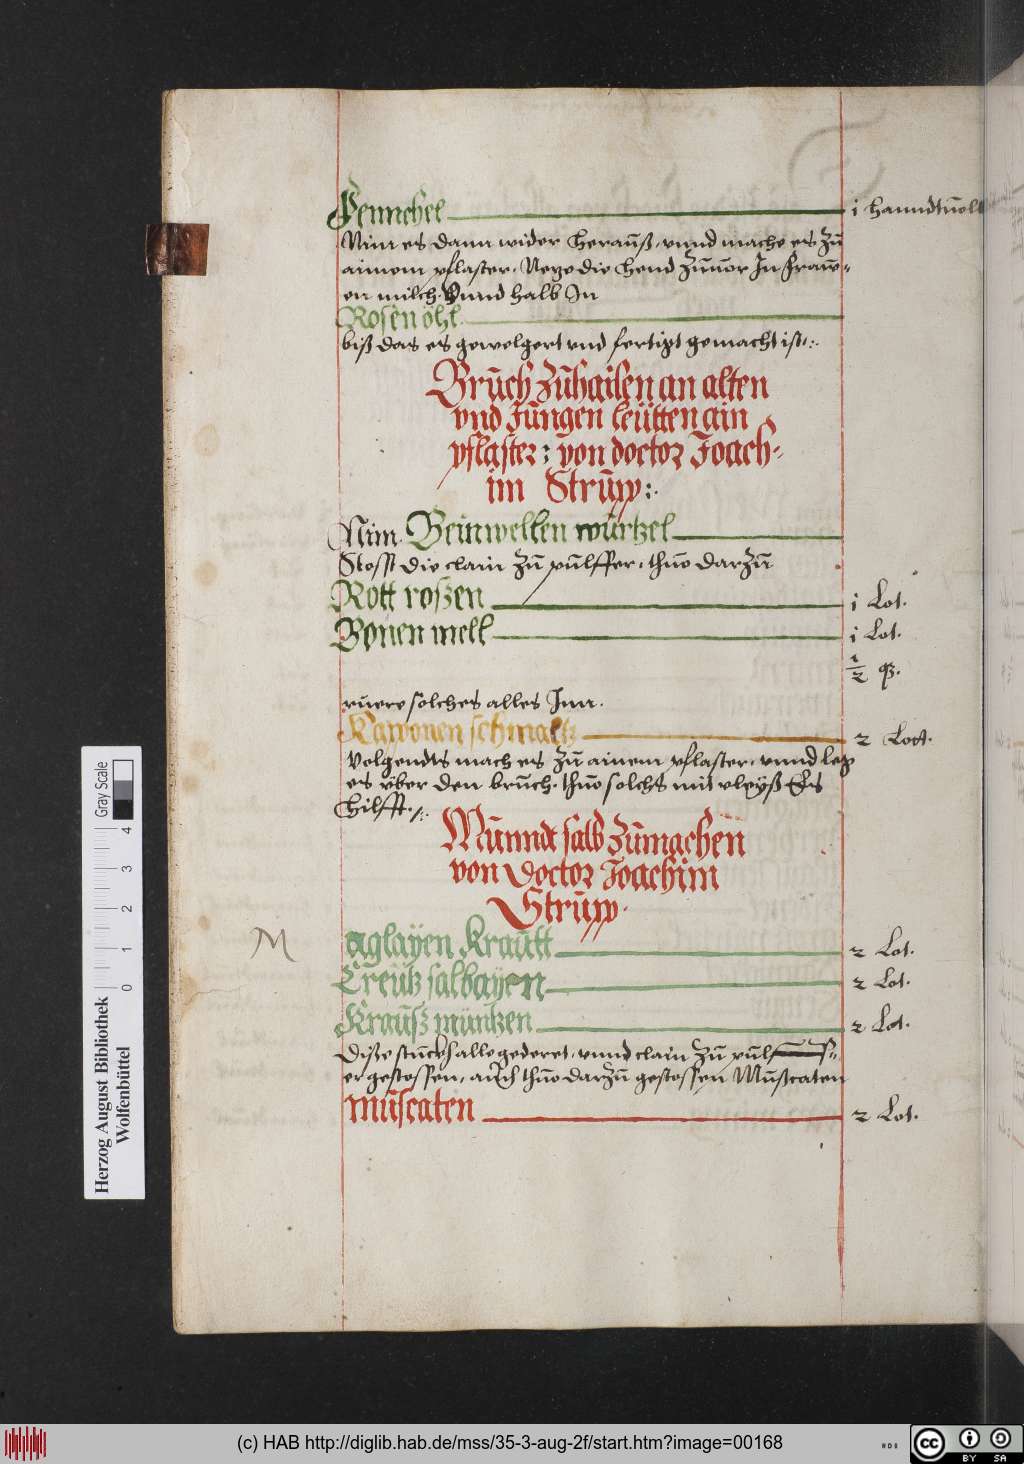 Fennchel i hanndtuoll
Nim es dann wider herauß, vnnd mache es zu
ainem pflaster, Neze die hend zuuor In fraw=
en milch. Vnnd halb In
Rosen öhl.
biß das es gewelgert vnd fertigt gemacht ist:.
Bruch zuhailen an alten
vnd Jungen leütten ain
pflaster: von doctor Joach=
im Strupp:.
Nim. Beinwellen wurtzel
Stosst die clain zu puluffer, thuo darzu
Rott roszen i Lot.
Bonen mell i Lot.
1/2 q.
ruere solches alles Inn.
Kapponen schmaltz 2 Lott.
Volgendts mach es zu ainem pflaster, vnnd leg
es vber den bruch. thuo solchs mit vleyß Es
hilfft./.
Munndt salb zumachen
von Doctor Joachim
Strupp.
M
aglayen Krautt 2 Lot.
Creutz salbayen 2 Lot.
Krausz müntzen 2 Lot.
Disze stuckh alle gederet, vnnd clain zu puluff=
er gestossen, auch thuo darzu gestossen Mußcaten
muscaten 2 Lot.
Herzog August Bibliothek
Wolfenbüttel
0 1 2 3 4
Gray Scale
(c) HAB http://diglib.hab.de/mss/35-3-aug-2f/start.htm?image=00168
cc BY SA